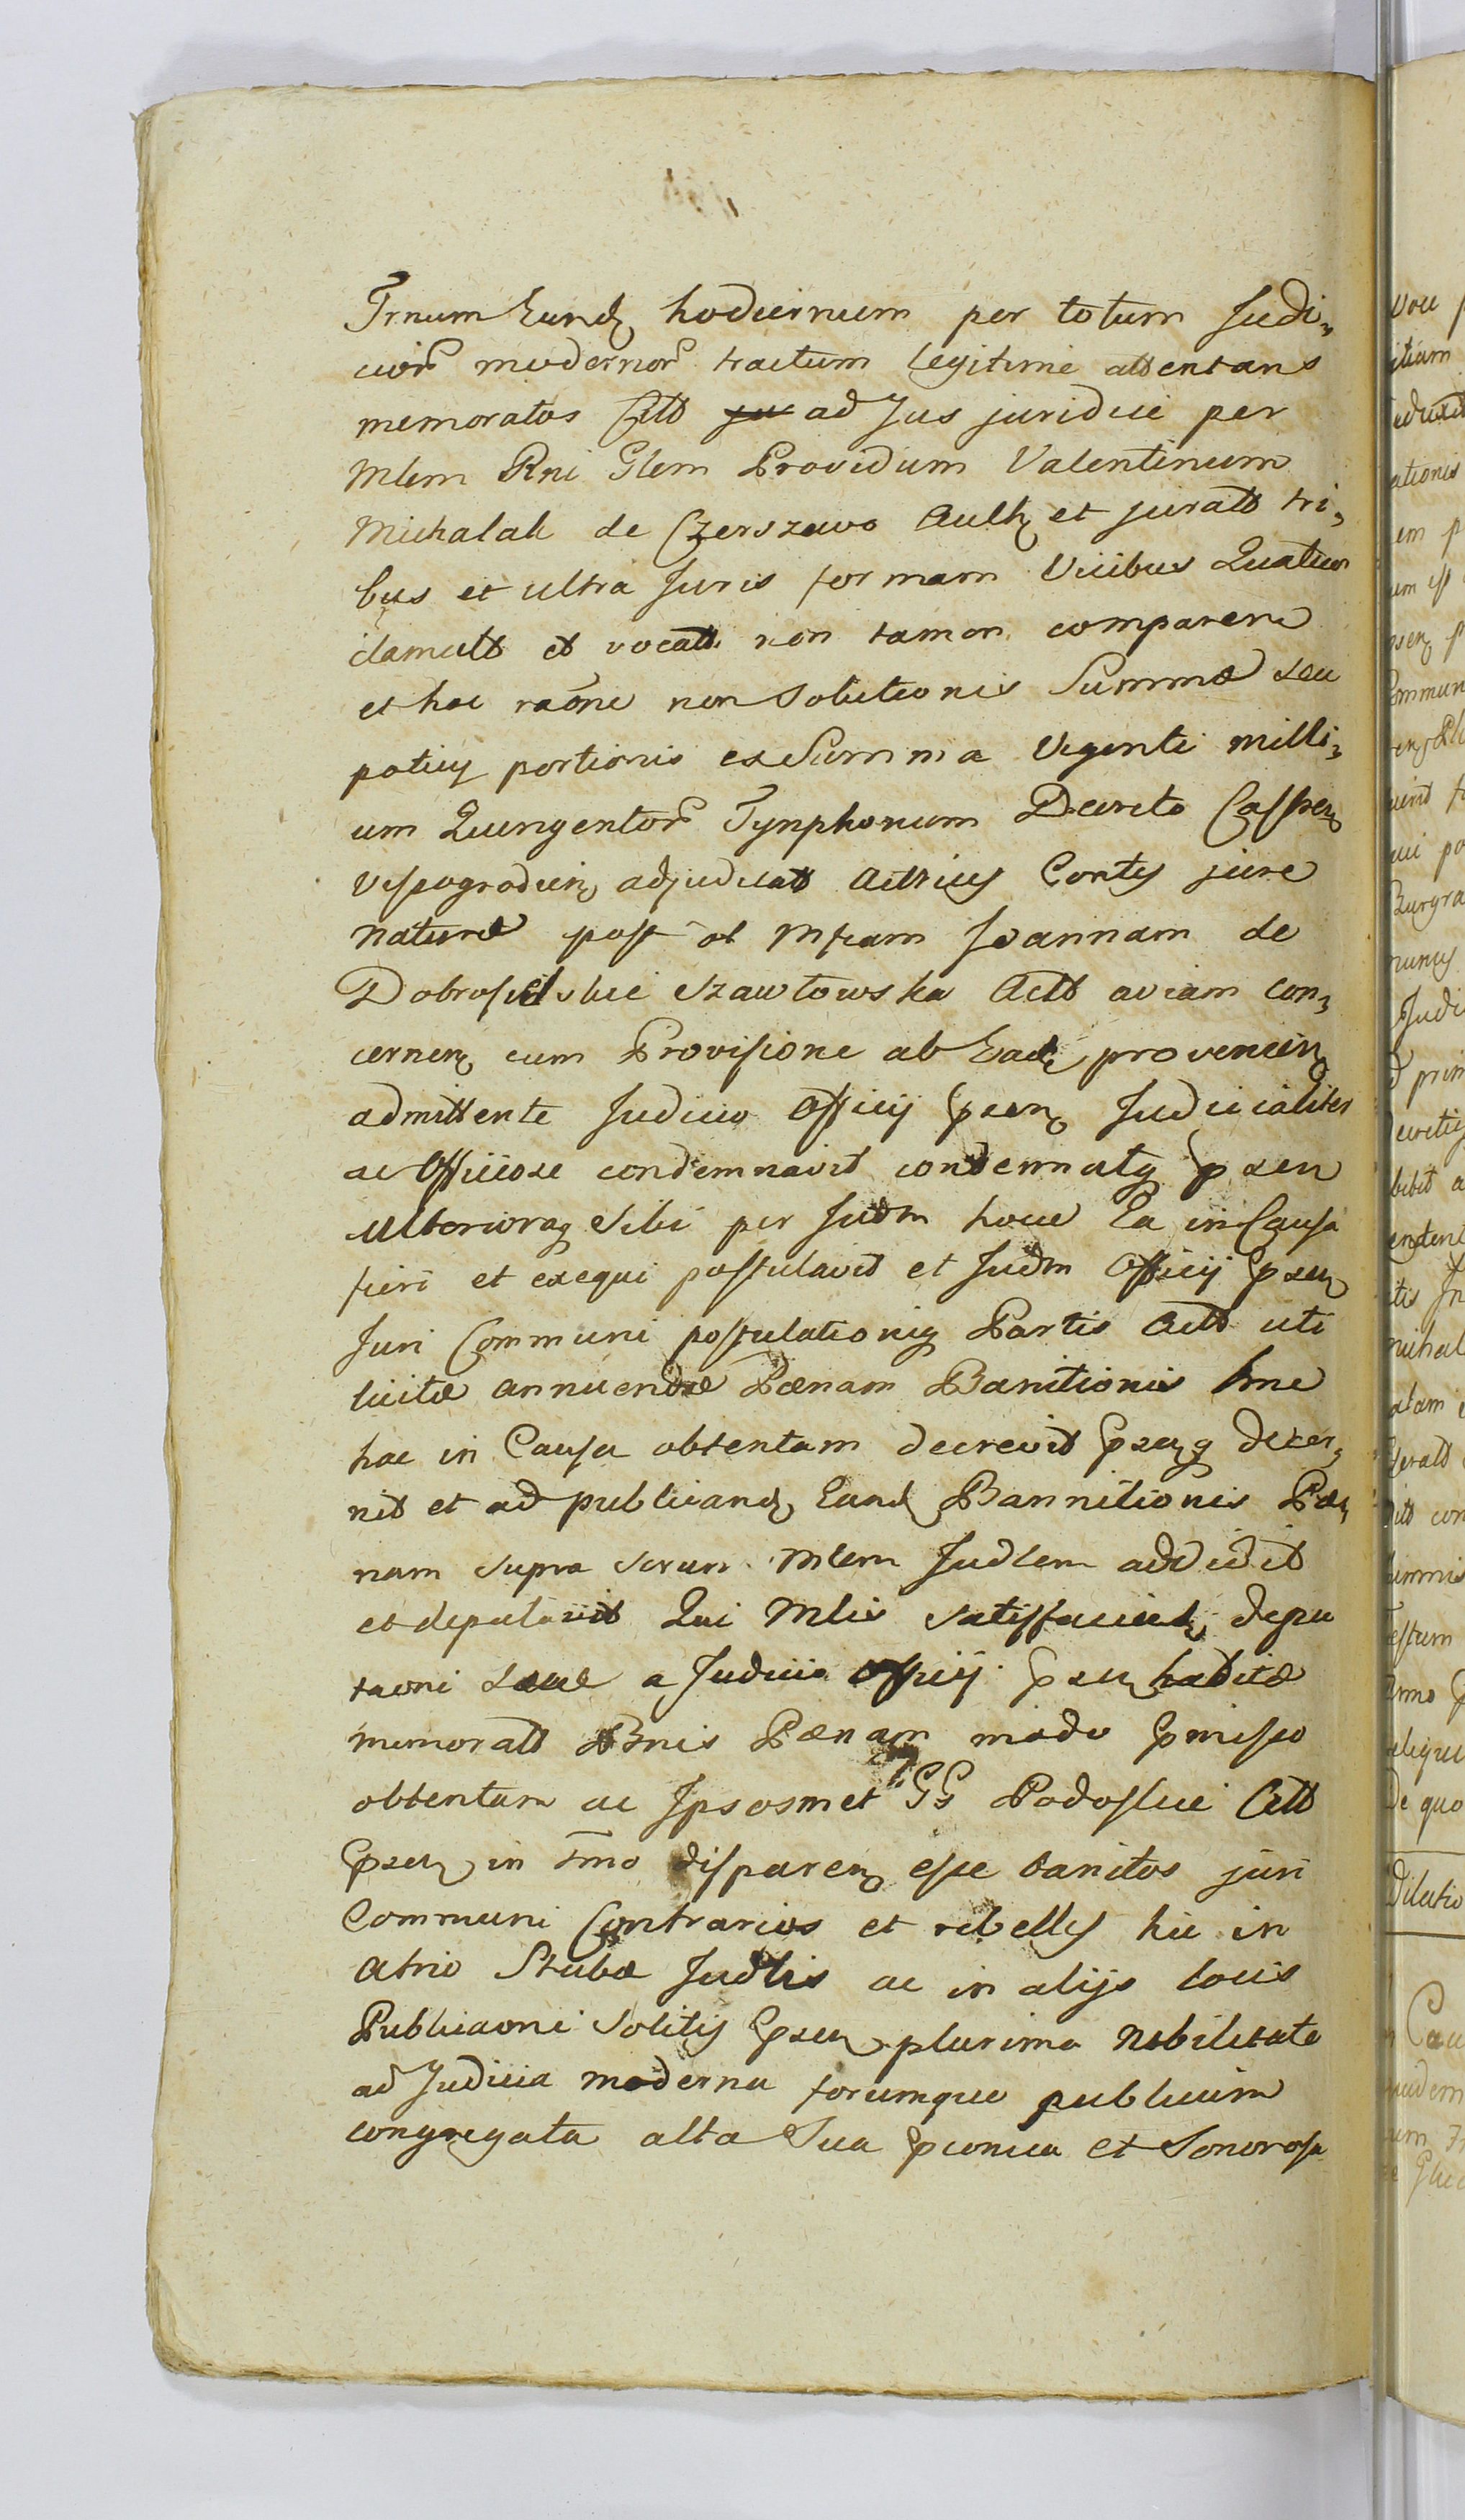 Trnum Eund hodiernum per totum Judi„
cior modernor tractum legitime attentans
memoratos Citt ad Jus juridice per
Mlem Rni Glem Providum Valentinum
Michalak de Czerszewo Auth et juratt tri„
bus et ultra Juris formam Vicibus Quatuor
clamatt et vocatt non tamen comparen
et hoc raone non Solutionis Summæ seu
potiy portionis ex Summa Viginti milli„
um Quingentor Tynphonum Decreto Cassren
Vyszogrodien adjudicatt Actricy Contej jure
naturæ post ol Mfcam Joannam de
Szawłowska Actt aviam con„
cernen cum Provisione ab Ead provenien
admittente Judicio Officij psen Judicialiter
ac Officiose condemnavit condemnatq psen
Ulterioraq Sibi per Judm hocce Ea in Causa
fieri et exequi postulavit et Judm Officij psen
Juri Communi postulationiq Partis Actt uti
licitæ annuendæ Pænam Banitionis
hac in Causa obtentam decrevit psenq decer„
nit et ad publicand Eand Bannitionis Pæ„
nam supra scrun Mlem Judlem addidit
et deputavit Qui Mlis satisfaciend depu
taoni suæ a Judicio Officij psen habitæ
memoratt Bnis Pænam modo pmisso
obtentam ac Ipsosmet GGs Podoskie Citt
psen in tmo disparen esse banitos juri
Communi Contrarios et rebelley hic in
atrio Stubæ Judlis ac in alijs locis
Publicaoni Solitij psen plurima Nobilitate
ad Judicia moderna forumque publicum
congregata alta Sua pconica et Sonorosa